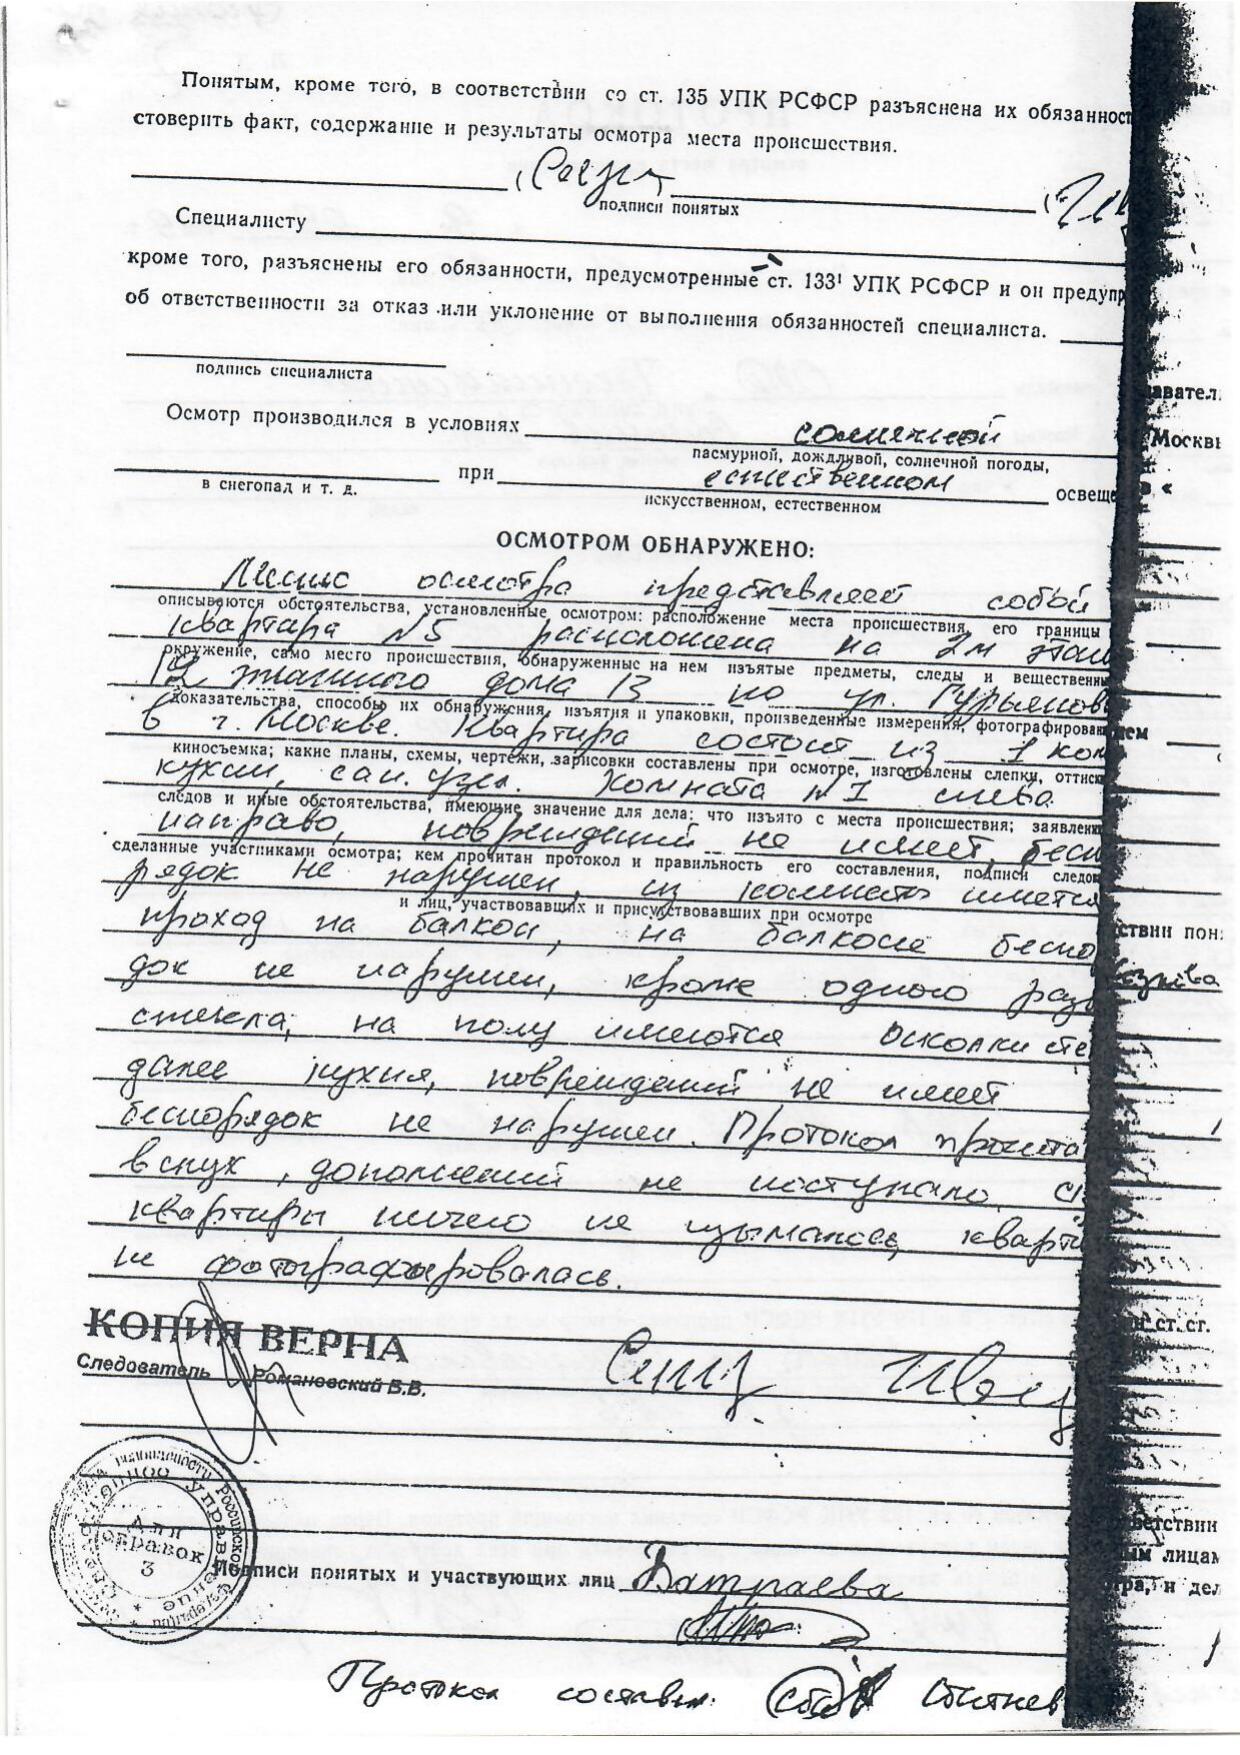 Понятым, кроме того, в соответствии со ст. 135 УПК РСФСР разъяснена их обязанност
стоверить факт, содержание и результаты осмотра места происшествия.
подписи понятых
Специалисту
кроме того, разъяснены его обязанности, предусмотренные ст. 133¹ УПК РСФСР и он предупр
об ответственности за отказ или уклонение от выполнения обязанностей специалиста.
подпись специалиста
Осмотр производился в условиях солнечной
пасмурной, дождливой, солнечной погоды,
при естественном освеще
в снегопад и т. д.
искусственном, естественном
ОСМОТРОМ ОБНАРУЖ�ено:
осмотра представляет собой
описываются обстоятельства, установленные осмотром: расположение места происшествия, его границы
квартира №5 расположена на 2м этаж
окружение, само место происшествия, обнаруженные на нем изъятые предметы, следы и вещественн
этажного дома 13 по ул. Гурьянов
доказательства, способы их обнаружения, изъятия и упаковки, произведенные измерения, фотографирован
в г. Москве. Квартира состоит из 1 ком
киносъемка; какие планы, схемы, чертежи, зарисовки составлены при осмотре, изготовлены слепки, оттиск
кухни, сан. узла. Комната №1 слева
следов и иные обстоятельства, имеющие значение для дела; что изъято с места происшествия; заявлени
направо, повреждений не имеет, бесп
сделанные участниками осмотра; кем прочитан протокол и правильность его составления, подписи следов
рядок не нарушен, из комнаты имется
и лиц, участвовавших и присутствовавших при осмотре
проход на балкон, на балконе беспо
док не нарушен, кроме одного разб
стекла, на полу имеются осколки сте
далее кухня, повреждений не имеет
беспорядок не нарушен. Протокол прочита
вслух, дополнений не поступало, с
квартиры ничего не изымалось, кварти
не фотографировалась.
КОПИЯ ВЕРНА
Следователь Романовский Б.В.
Следственное управление
Для справок
3
Подписи понятых и участвующих лиц Батраева
Протокол составил:
авател
Москвы
ем
ствии пон
ст. ст.
ветствии
ым лицам
тра, и дел